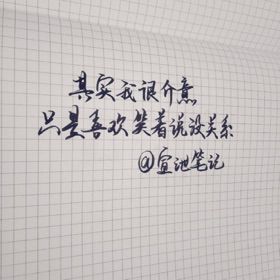 其实我很介意
只是喜欢笑着说没关系
@宣池笔记